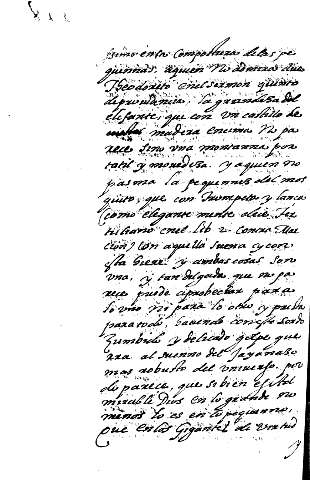 en la compostura de las pe
quinnas, a quien no admira dice
Theodoreto en el sermon quinto
de providencia, la grandeza del
elefante, que con un castillo de
madera encima no pa
rece sino una montanna por
tatil y movediza y a quien no
pasma la pequennes del mos
quito, que con trompeta y lanza
como elegante mente dice Ter
tuliano en el lib 2 contra Mar
cion, con aquella suena y con
esta hiere. y ambas cosas son
una, y tan delgada que no pa
rece puede aprobechar para
lo uno no para lo otro y
para todo, haciendo con esso sordo
zumbido y delicado golpe que
al suenno del
mas robusto del universo. por
do parece, que si bien es Ad
mirable Dios en lo grande no
menos lo es en lo pequenno,
que en los Gigantes al virtud
y